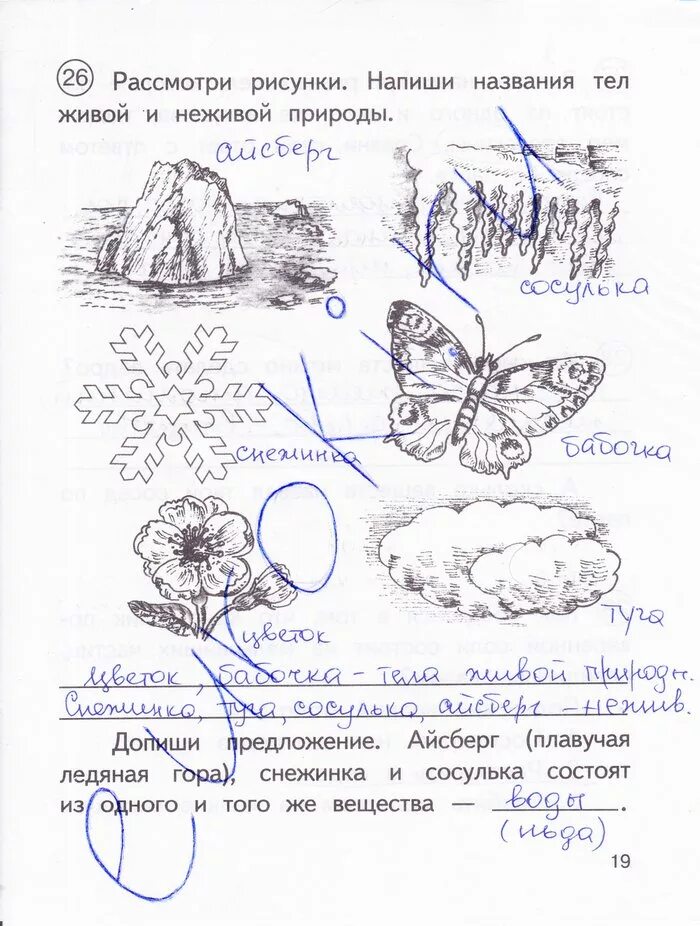 26 Рассмотри рисунки. Напиши названия тел
живой и неживой природы.
айсберг
сосулька
снежинка
бабочка
цветок
туча
Цветок, бабочка - тела живой природы.
Снежинка, туча, сосулька, айсберг нежив.
Допиши предложение. Айсберг (плавучая
ледяная гора), снежинка и сосулька состоят
из одного и того же вещества — воды.
(льда)
19